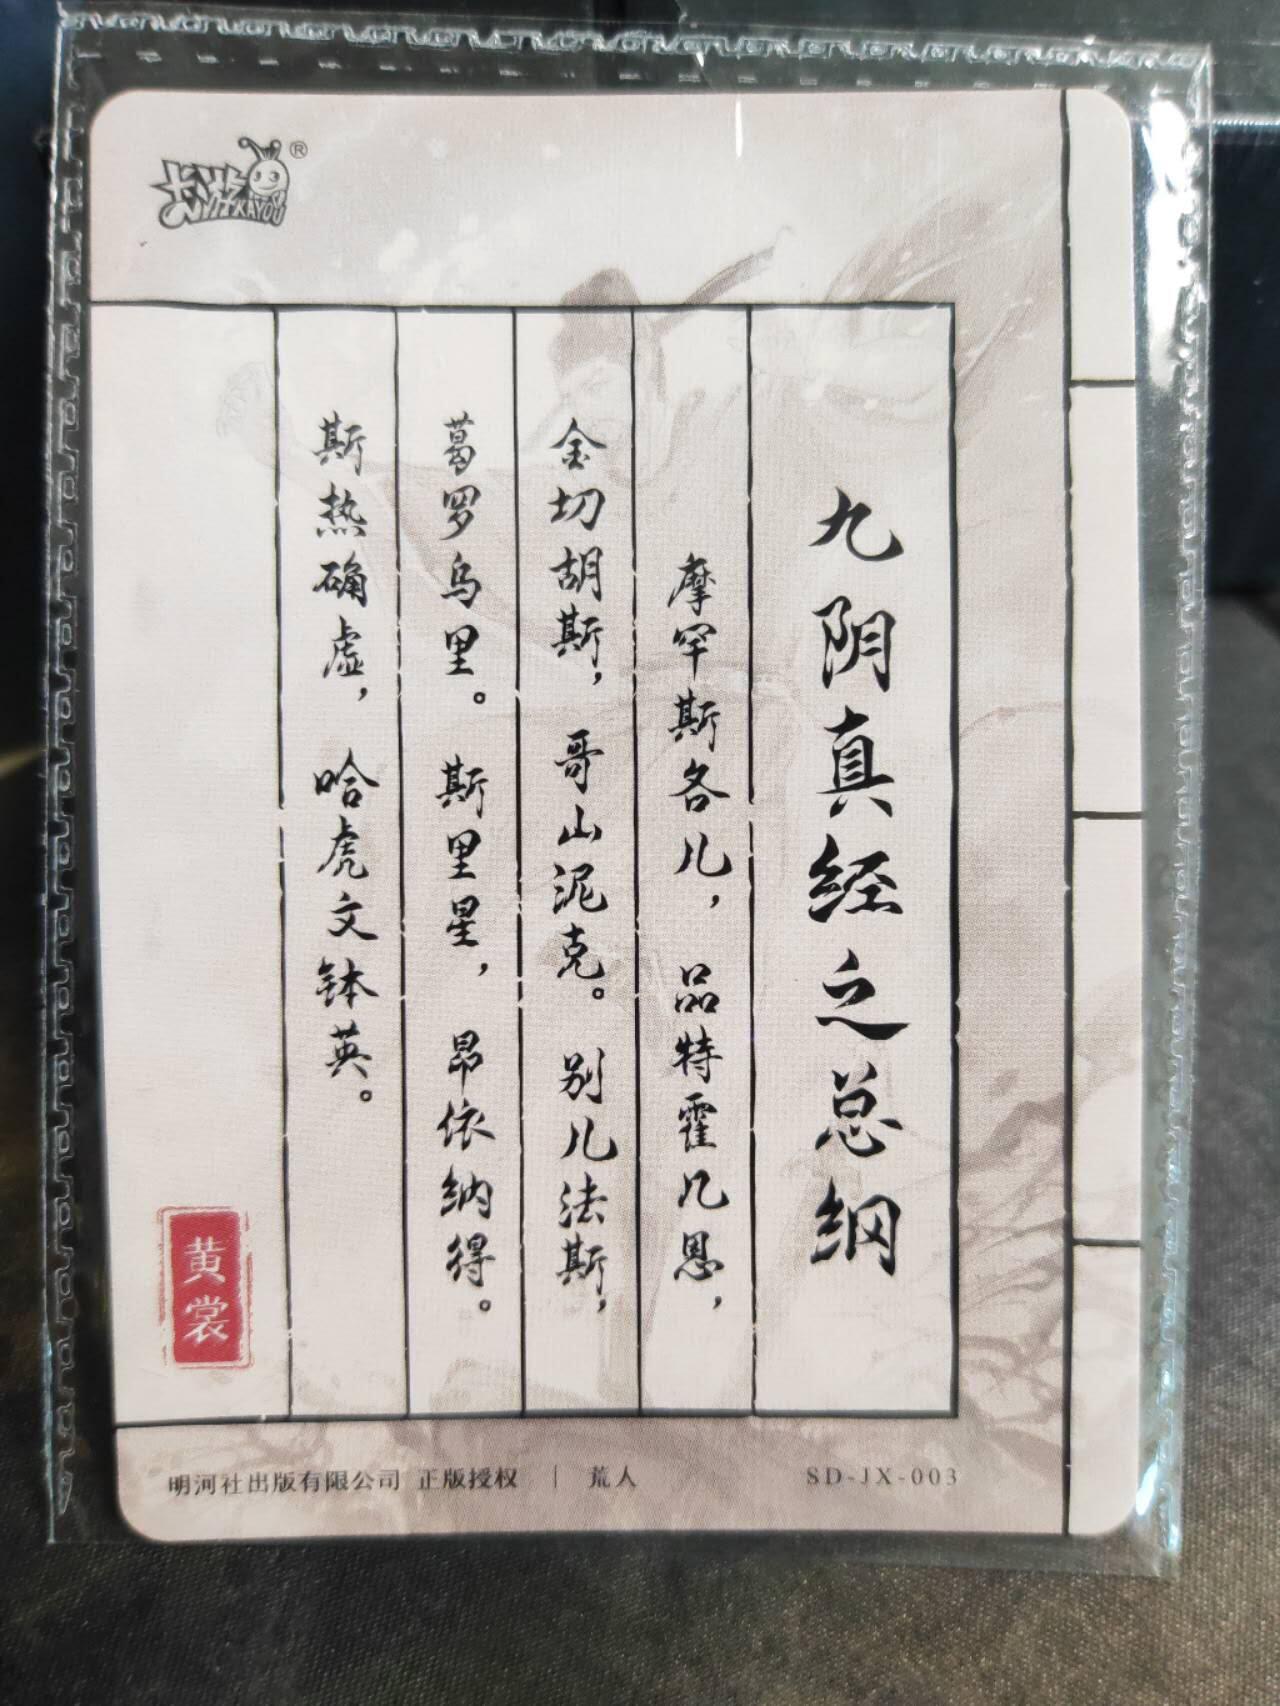 卡游
KAYOU
®
九阴真经之总纲
摩罕斯各儿，品特霍几恩，
金切胡斯，哥山泥克。别儿法斯，
葛罗乌里。斯里星，昂依纳得。
斯热确虚，哈虎文钵英。
黄裳
明河社出版有限公司 正版授权 | 荒人
SD-JX-003